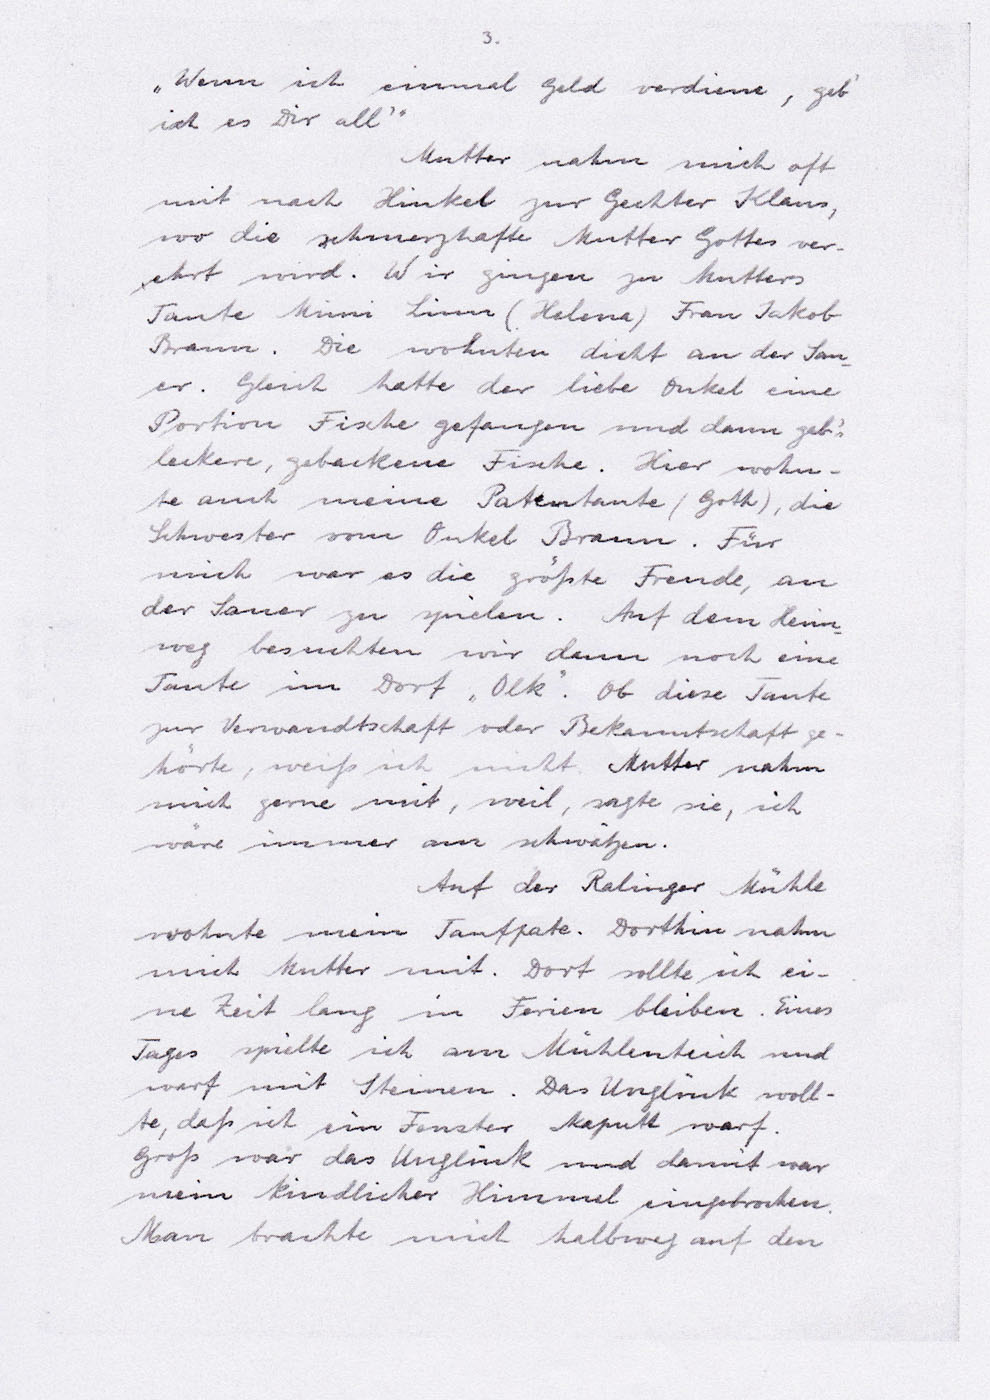 3.
„Wenn ich einmal Geld verdiene, geb'
ich es Dir all'“
Mutter nahm mich oft
mit nach Hinkel zur Gechter Klaus,
wo die schmerzhafte Mutter Gottes ver-
ehrt wird. Wir gingen zu Mutters
Tante Mimi Linn (Helena) Frau Jakob
Braun. Die wohnten dicht an der Sau-
er. Gleich hatte der liebe Onkel eine
Portion Fische gefangen und dann gab's
leckere, gebackene Fische. Hier wohn-
te auch meine Patentante (Goth), die
Schwester vom Onkel Braun. Für
mich war es die größte Freude, an
der Sauer zu spielen. Auf dem Heim-
weg besuchten wir dann noch eine
Tante im Dorf „Olk“. Ob diese Tante
zur Verwandtschaft oder Bekanntschaft ge-
hörte, weiß ich nicht. Mutter nahm
mich gerne mit, weil, sagte sie, ich
wäre immer am schwätzen.
Auf der Ralinger Mühle
wohnte mein Taufpate. Dorthin nahm
mich Mutter mit. Dort sollte ich ei-
ne Zeit lang in Ferien bleiben. Eines
Tages spielte ich am Mühlenteich und
warf mit Steinen. Das Unglück woll-
te, daß ich ein Fenster kaputt warf.
Groß war das Unglück und damit war
mein kindlicher Himmel eingebrochen.
Man brachte mich halbweg auf den